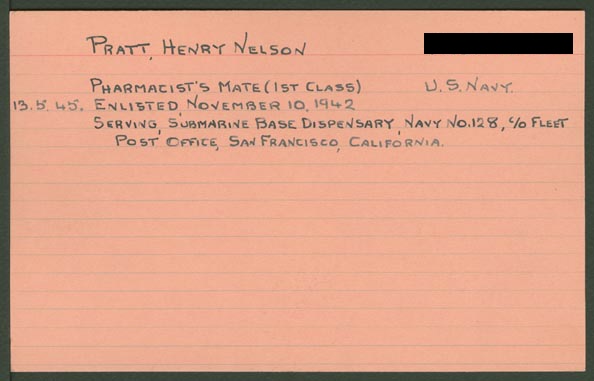 PRATT, HENRY NELSON
PHARMACIST'S MATE (1ST CLASS) U.S. NAVY.
13.5.45. ENLISTED, NOVEMBER 10, 1942
SERVING, SUBMARINE BASE DISPENSARY, NAVY NO.128, C/O FLEET
POST OFFICE, SAN FRANCISCO, CALIFORNIA.